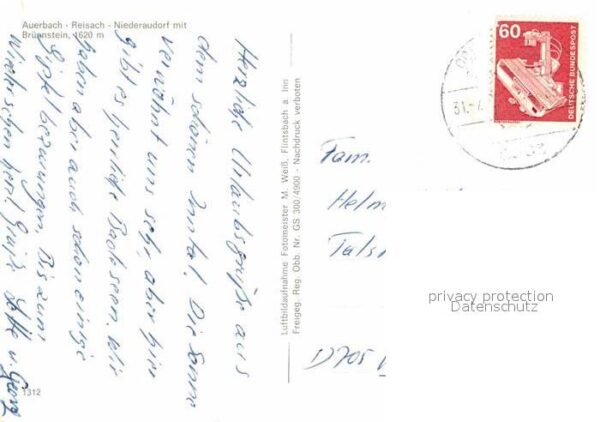 Auerbach - Reisach - Niederaudorf mit
Brünnstein, 1620 m
Herzliche Urlaubsgrüße aus
dem schönen Inntal. Die Sonne
verwöhnt uns sehr, aber hier
gibt es herrliche Badeseen. Wir
haben aber auch schon einige
Gipfel bezwungen. Bis zum
Wiedersehen herzl. Grüße u. Georg
1312
Luftbildaufnahme Fotomeister M. Weiß, Flintsbach a. Inn
Freigeg. Reg. Obb. Nr. GS 300/4900 - Nachdruck verboten
60
DEUTSCHE BUNDESPOST
31.-7
Fam.
Helm
Tals
D705
privacy protection
Datenschutz